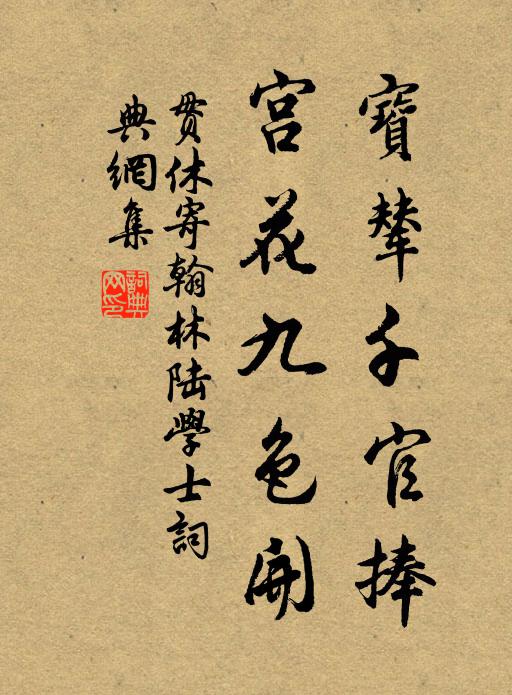 寶輦千官捧
宮花九色開
貫休寄翰林陸學士詞
典網集
詞典
网印